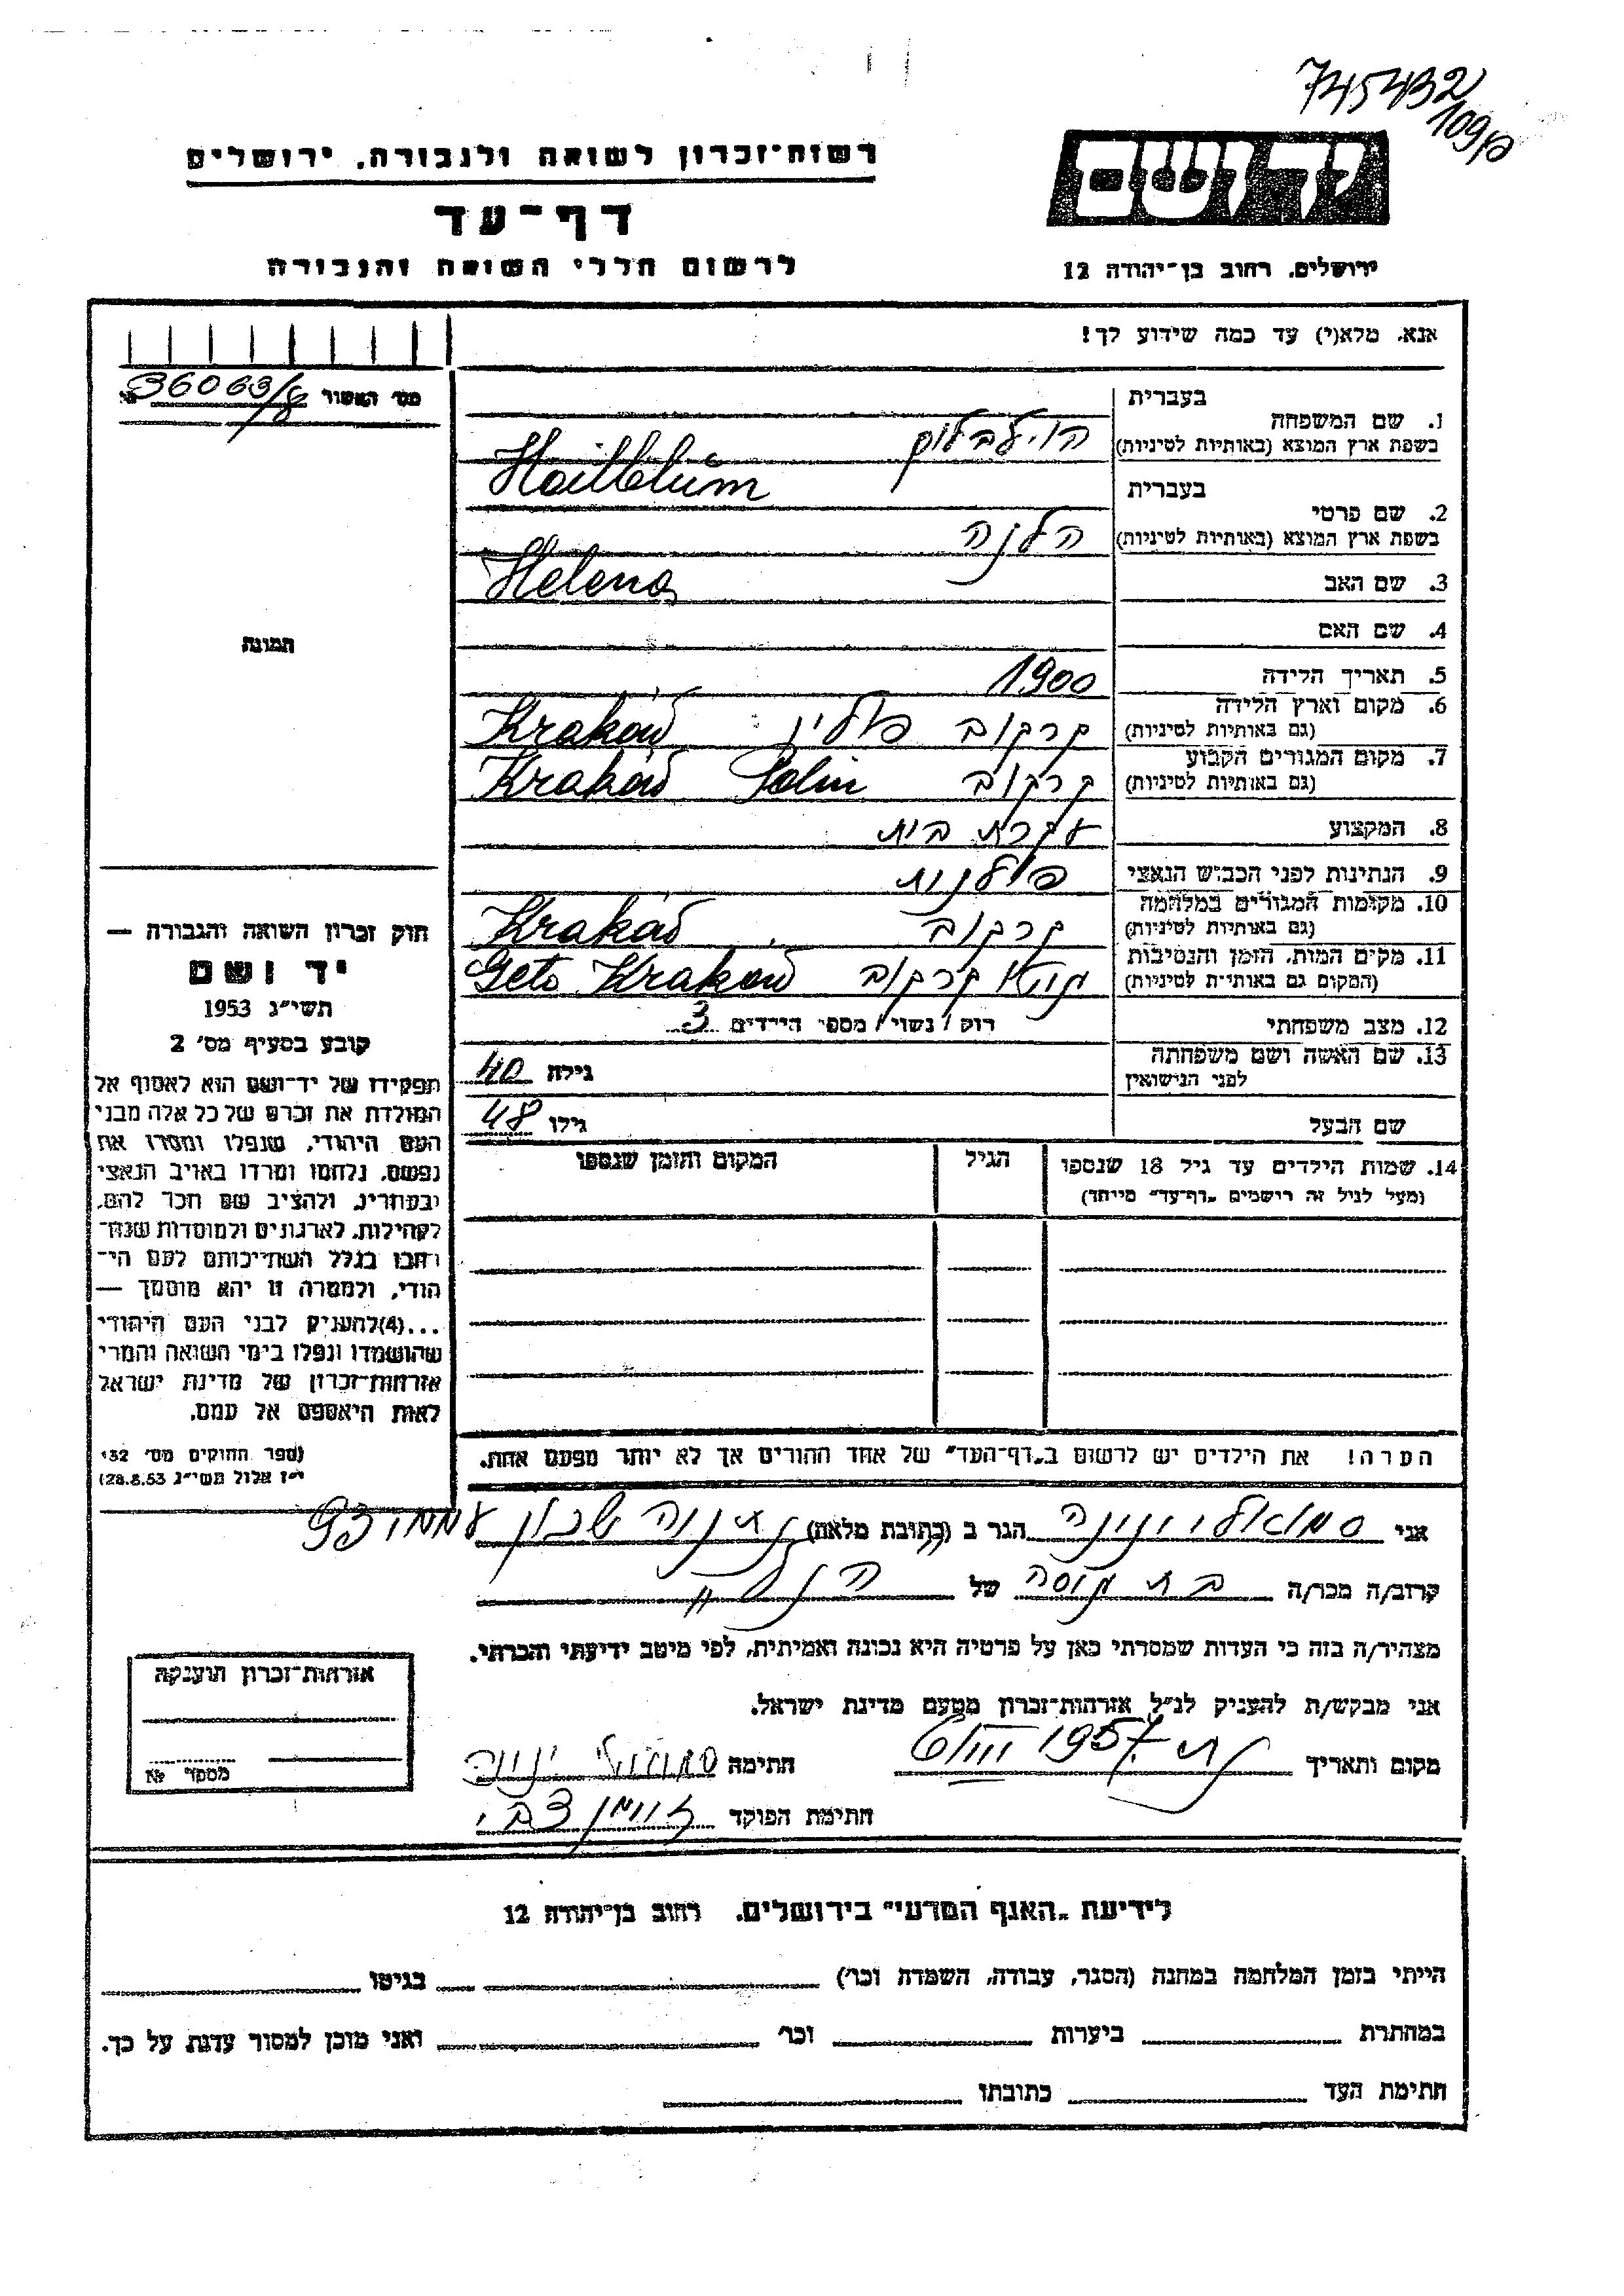 745432
109/פ
יד ושם
ירושלים, רחוב בן־יהודה 12
רשות־זכרון לשואה ולגבורה, ירושלים
דף־עד
לרשום חללי השואה והגבורה
אנא, מלא(י) עד כמה שידוע לך!
מס׳ האשור 36063/8
1. שם המשפחה בעברית הוילבלום
בשפת ארץ המוצא (באותיות לטיניות) Hoilblum
2. שם פרטי בעברית הלנה
בשפת ארץ המוצא (באותיות לטיניות) Helena
3. שם האב
4. שם האם
5. תאריך הלידה 1900
6. מקום וארץ הלידה
(גם באותיות לטיניות) קרקוב פולין Kraków
7. מקום המגורים הקבוע
(גם באותיות לטיניות) קרקוב Polin Kraków
8. המקצוע עקרת בית
9. הנתינות לפני הכבוש הנאצי פולנית
10. מקומות המגורים במלחמה
(גם באותיות לטיניות) קרקוב Kraków
11. מקום המות, הזמן והנסיבות
(המקום גם באותיות לטיניות) קרקוב Geto Kraków
12. מצב משפחתי רוק / נשוי / מספר הילדים 3
13. שם האשה ושם משפחתה
לפני הנישואין גילה 40
שם הבעל גילו 48
14. שמות הילדים עד גיל 18 שנספו
(מעל לגיל זה רושמים „דף־עד" מיוחד)
הגיל
המקום והזמן שנספו
הערה! את הילדים יש לרשום ב„דף־העד" של אחד ההורים אך לא יותר מפעם אחת.
תמונה
חוק זכרון השואה והגבורה —
יד ושם
תשי"ג 1953
קובע בסעיף מס׳ 2
תפקידו של יד־ושם הוא לאסוף אל
המולדת את זכרם של כל אלה מבני
העם היהודי, שנפלו ומסרו את
נפשם, נלחמו ומרדו באויב הנאצי
ובעוזריו, ולהציב שם וזכר להם,
לקהילות, לארגונים ולמוסדות שנח־
רבו בגלל השתייכותם לעם הי־
הודי, ולמטרה זו יהא מוסמך —
...(4)להעניק לבני העם היהודי
שהושמדו ונפלו בימי השואה והמרי
אזרחות־זכרון של מדינת ישראל
לאות היאספם אל עמם.
(ספר החוקים מס׳ 132
י"ז אלול תשי"ג 28.8.53)
אני סמואלי יונה הגר ב (כתובת מלאה) נתניה שכון עממי 93
קרוב/ה מכר/ה בת של
מצהיר/ה בזה כי העדות שמסרתי כאן על פרטיה היא נכונה ואמיתית, לפי מיטב ידיעתי והכרתי.
אני מבקש/ת להעניק לנ"ל אזרחות־זכרון מטעם מדינת ישראל.
מקום ותאריך 1957 חתימה סמואלי יונה
חתימת הפוקד
אזרחות־זכרון הוענקה
מספר №
לידיעת „האגף המדעי" בירושלים, רחוב בן־יהודה 12
הייתי בזמן המלחמה במחנה (הסגר, עבודה, השמדה וכו׳) בגיטו
במחתרת ביערות וכו׳ ואני מוכן למסור עדות על כך.
חתימת העד כתובתו